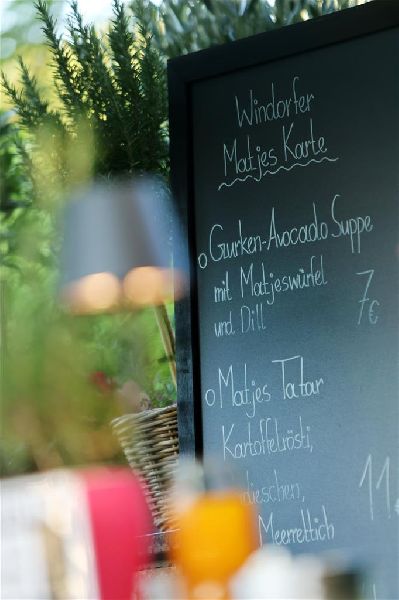 Windorfer
Matjes Karte
o Gurken-Avocado Suppe
mit Matjeswürfel 7 €
und Dill
o Matjes Tatar
Kartoffelrösti,
11
Meerrettich